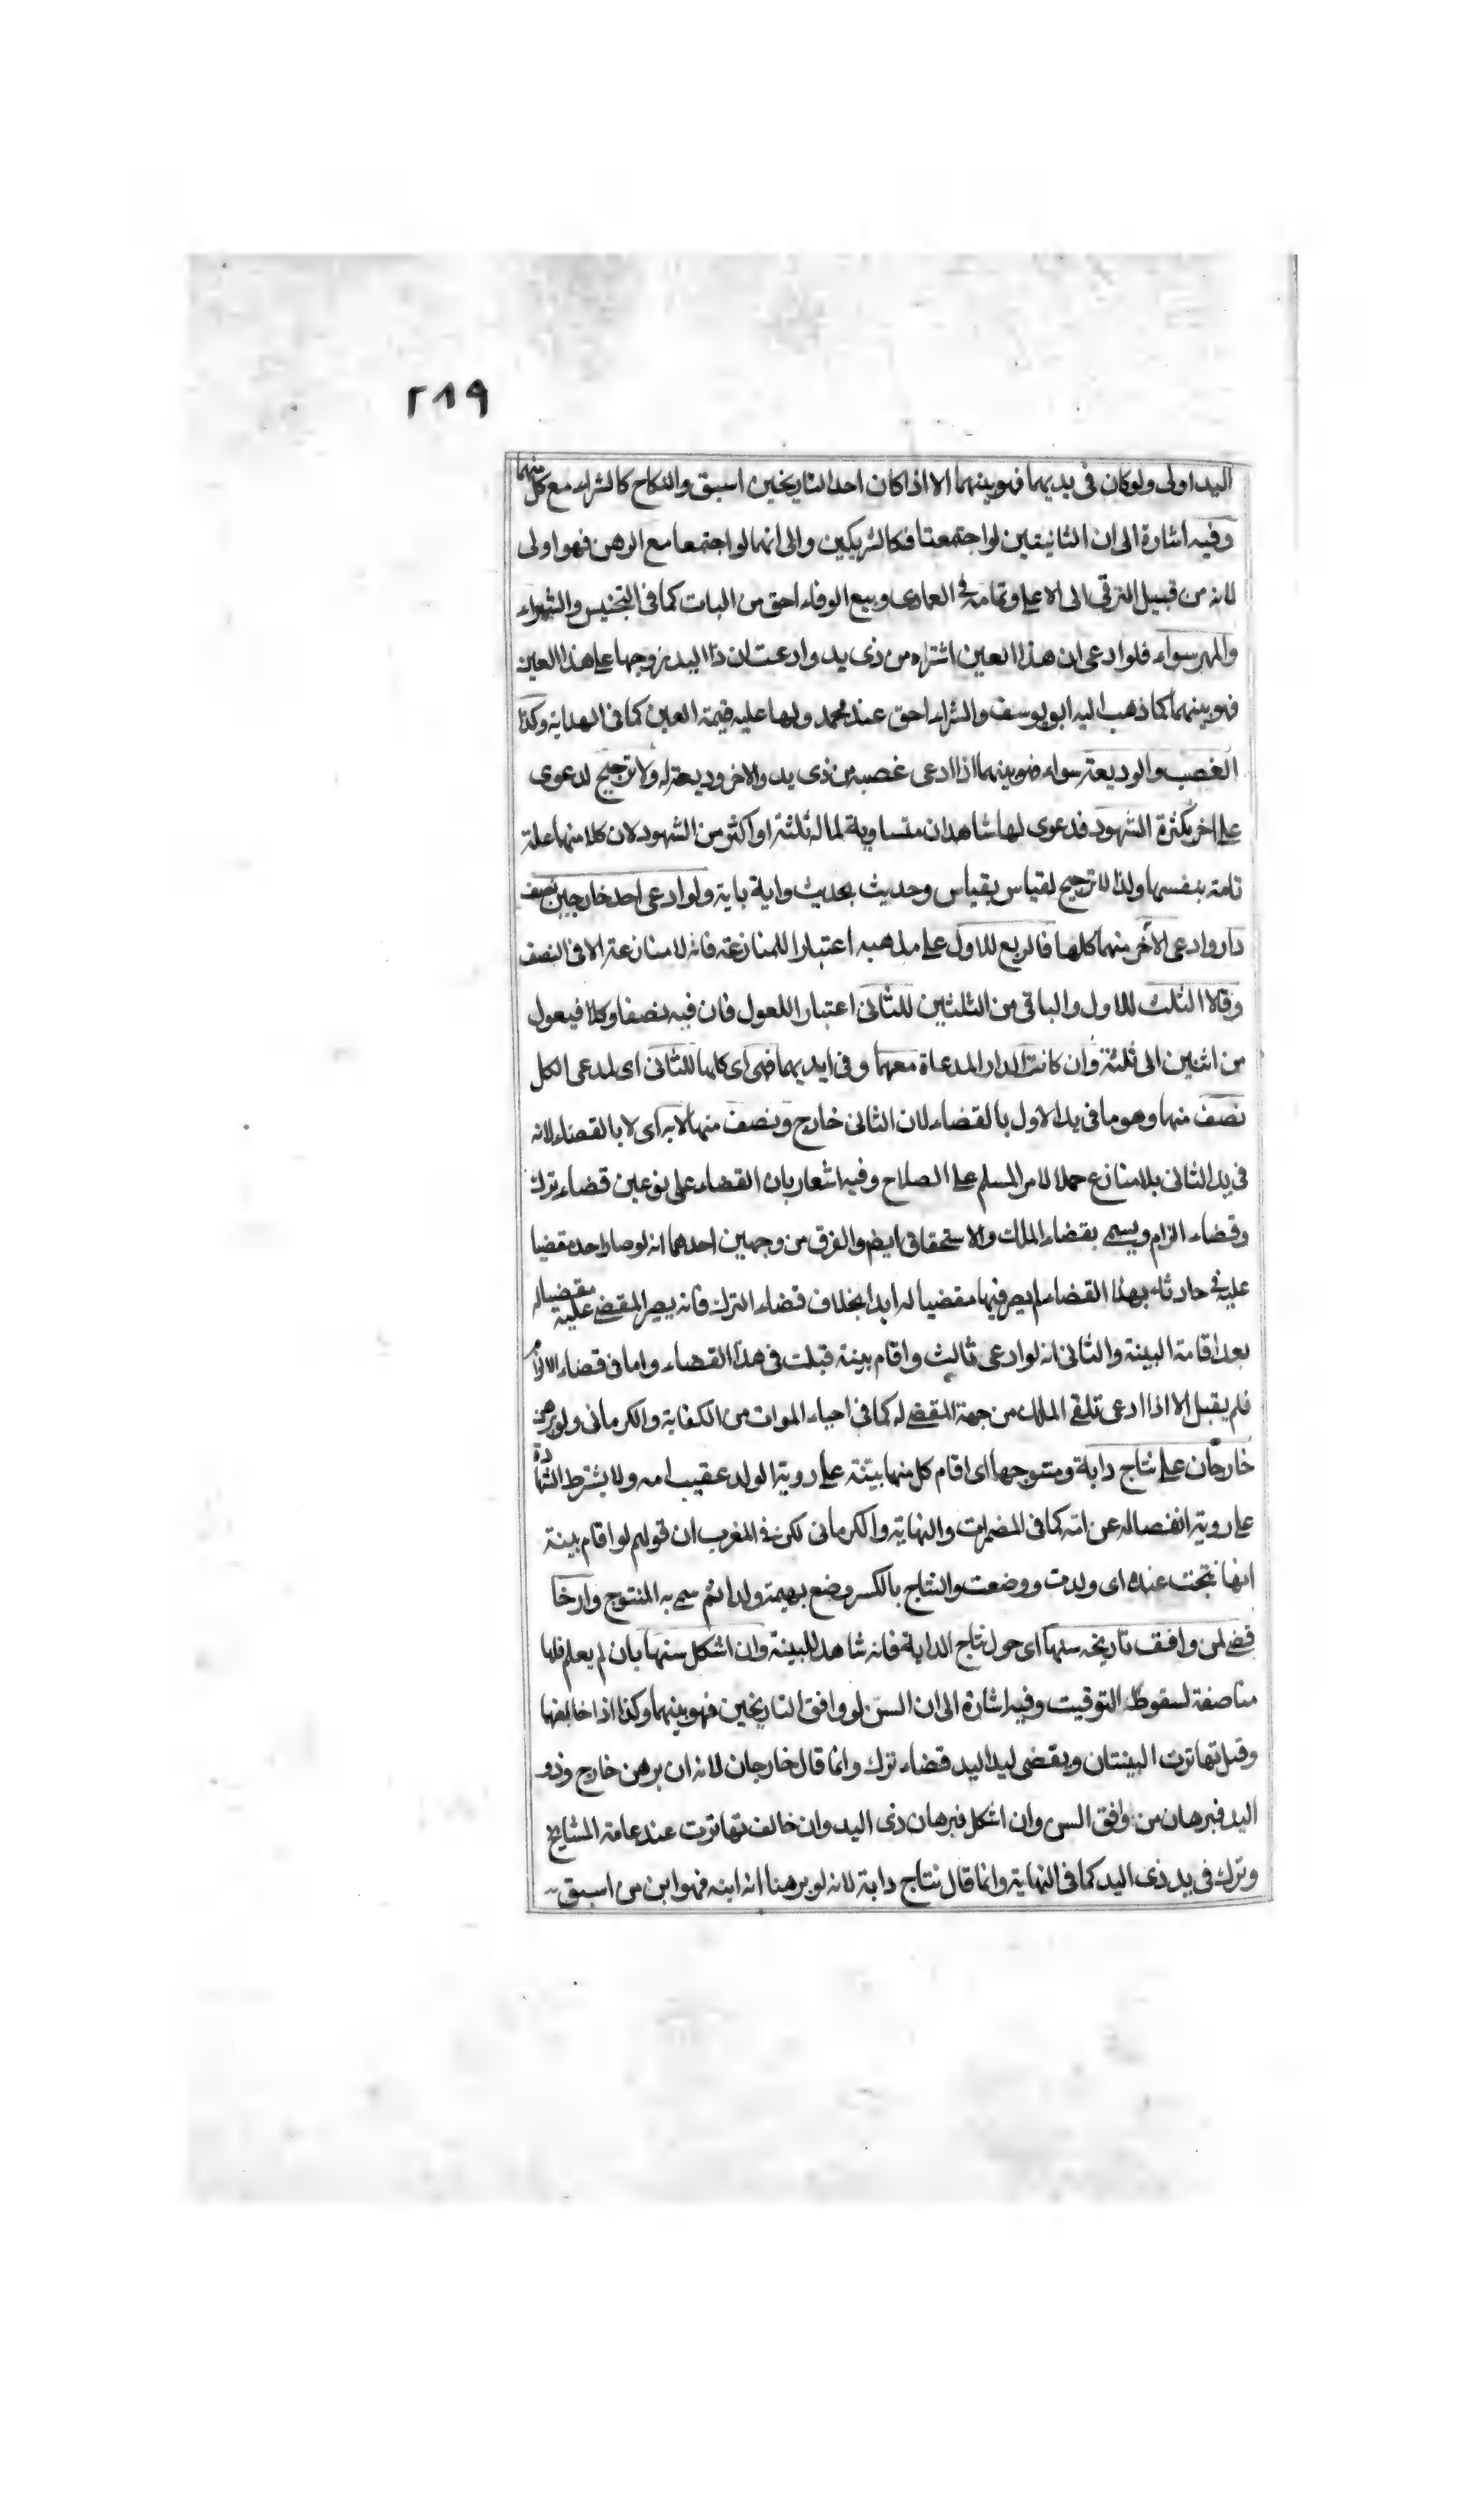 ٢٨٩
اليد اولى ولو كان في يديهما فهو بينهما الا اذا كان احد التاريخين اسبق والنكاح كالشراء مع كل منهما
وفيه اشارة الى ان الثانيتين لو اجتمعتا فكالشريكين والى انهما لو اجتمعا مع الرهن فهو اولى
لانه من قبيل الترقي الى الاعلى وتمامه في العمادي وبيع الوفاء احق من البات كما في التجنيس والشراء
والمهر سواء فلو ادعى ان هذا العين اشتراه من ذي يد وادعت ان ذا اليد تزوجها على هذا العين
فهو بينهما كما ذهب اليه ابو يوسف والشراء احق عند محمد ولها عليه قيمة العين كما في الهداية وكذا
الغصب والوديعة سواء فهو بينهما اذا ادعى غصبه من ذي يد والاخر وديعة له ولا ترجيح لدعوى
على اخرى بكثرة الشهود فدعوى لها شاهدان متساوية لما له ثلثة او اكثر من الشهود لان كلا منهما علة
تامة بنفسها ولذا لا ترجيح لقياس بقياس وحديث بحديث واية باية ولو ادعى احد خارجين نصف
دار وادعى الآخر منهما كلها فالربع للاول على مذهبه اعتبارا للمنازعة فانه لا منازعة الا في النصف
وقالا الثلث للاول والباقي من الثلثين للثاني اعتبارا للعول فان فيه نصفا وكلا فيعول
من اثنين الى ثلثة وان كانت الدار المدعاة معهما وفي ايديهما فهي اي كلها للثاني اي لمدعي الكل
نصف منها وهو ما في يد الاول بالقضاء لان الثاني خارج ونصف منها لا به اي لا بالقضاء لانه
في يد الثاني بلا منازع حملا لامر المسلم على الصلاح وفيه اشعار بان القضاء على نوعين قضاء ترك
وقضاء الزام ويسمى بقضاء الملك والاستحقاق ايضا والفرق من وجهين احدهما انه لو صار احد مقضيا
عليه في حادثة بهذا القضاء لم يصر فيها مقضيا له ابدا بخلاف قضاء الترك فانه يصير المقضي عليه مقضيا له
بعد اقامة البينة والثاني انه لو ادعى ثالث واقام بينة قبلت في هذا القضاء واما في قضاء الالزام
فلم يقبل الا اذا ادعى تلقي الملك من جهة المقضي له كما في احياء الموات من الكفاية والكرماني ولو برهن
خارجان على نتاج دابة ومنتوجها اي اقام كل منهما بينة على روية الولد عقيب امه ولا يشترط الشهادة
على روية انفصاله عن امه كما في المضمرات والنهاية والكرماني لكن في المغرب ان قولهم لو اقام بينة
انها نتجت عنده اي ولدت ووضعت والنتاج بالكسر وضع بهيمة ولدا ثم سمي به المنتوج وارخا
قضي لمن وافق تاريخه سنها اي حول نتاج الدابة فانه شاهد للبينة وان اشكل سنها بان لم يعلم فلها
مناصفة لسقوط التوقيت وفيه اشارة الى ان السن لو وافق التاريخين فهو بينهما وكذا اذا خالفهما
وقيل تهاترت البينتان ويقضى لذي اليد قضاء ترك وانما قال خارجان لانه ان برهن خارج وذو
اليد فبرهان من وافق السن وان اشكل فبرهان ذي اليد وان خالف تهاترت عند عامة المشايخ
وترك في يد ذي اليد كما في النهاية وانما قال نتاج دابة لانه لو برهنا انه ابنه فهو ابن من اسبق